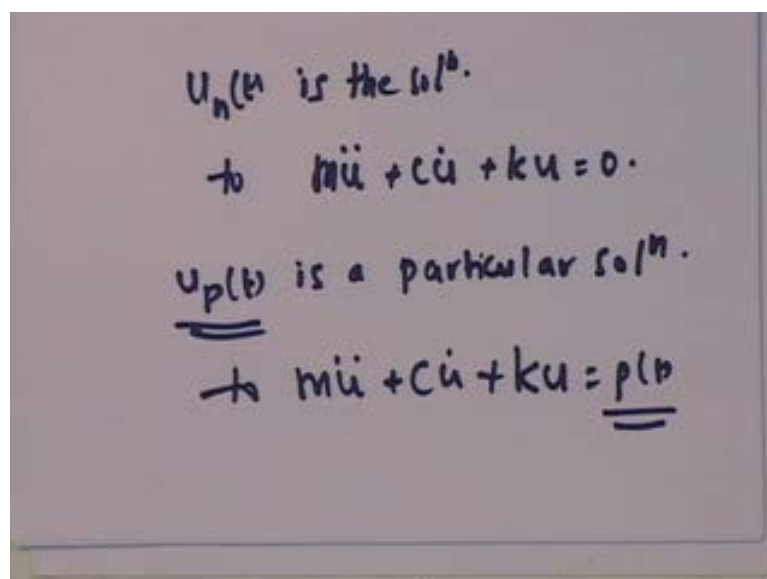 u_n(t) is the solⁿ.
to mü + cu̇ + ku = 0.
u_p(t) is a particular solⁿ.
to mü + cu̇ + ku = p(t)